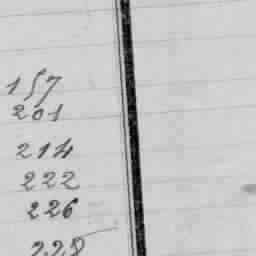 157
201
214
222
226
228